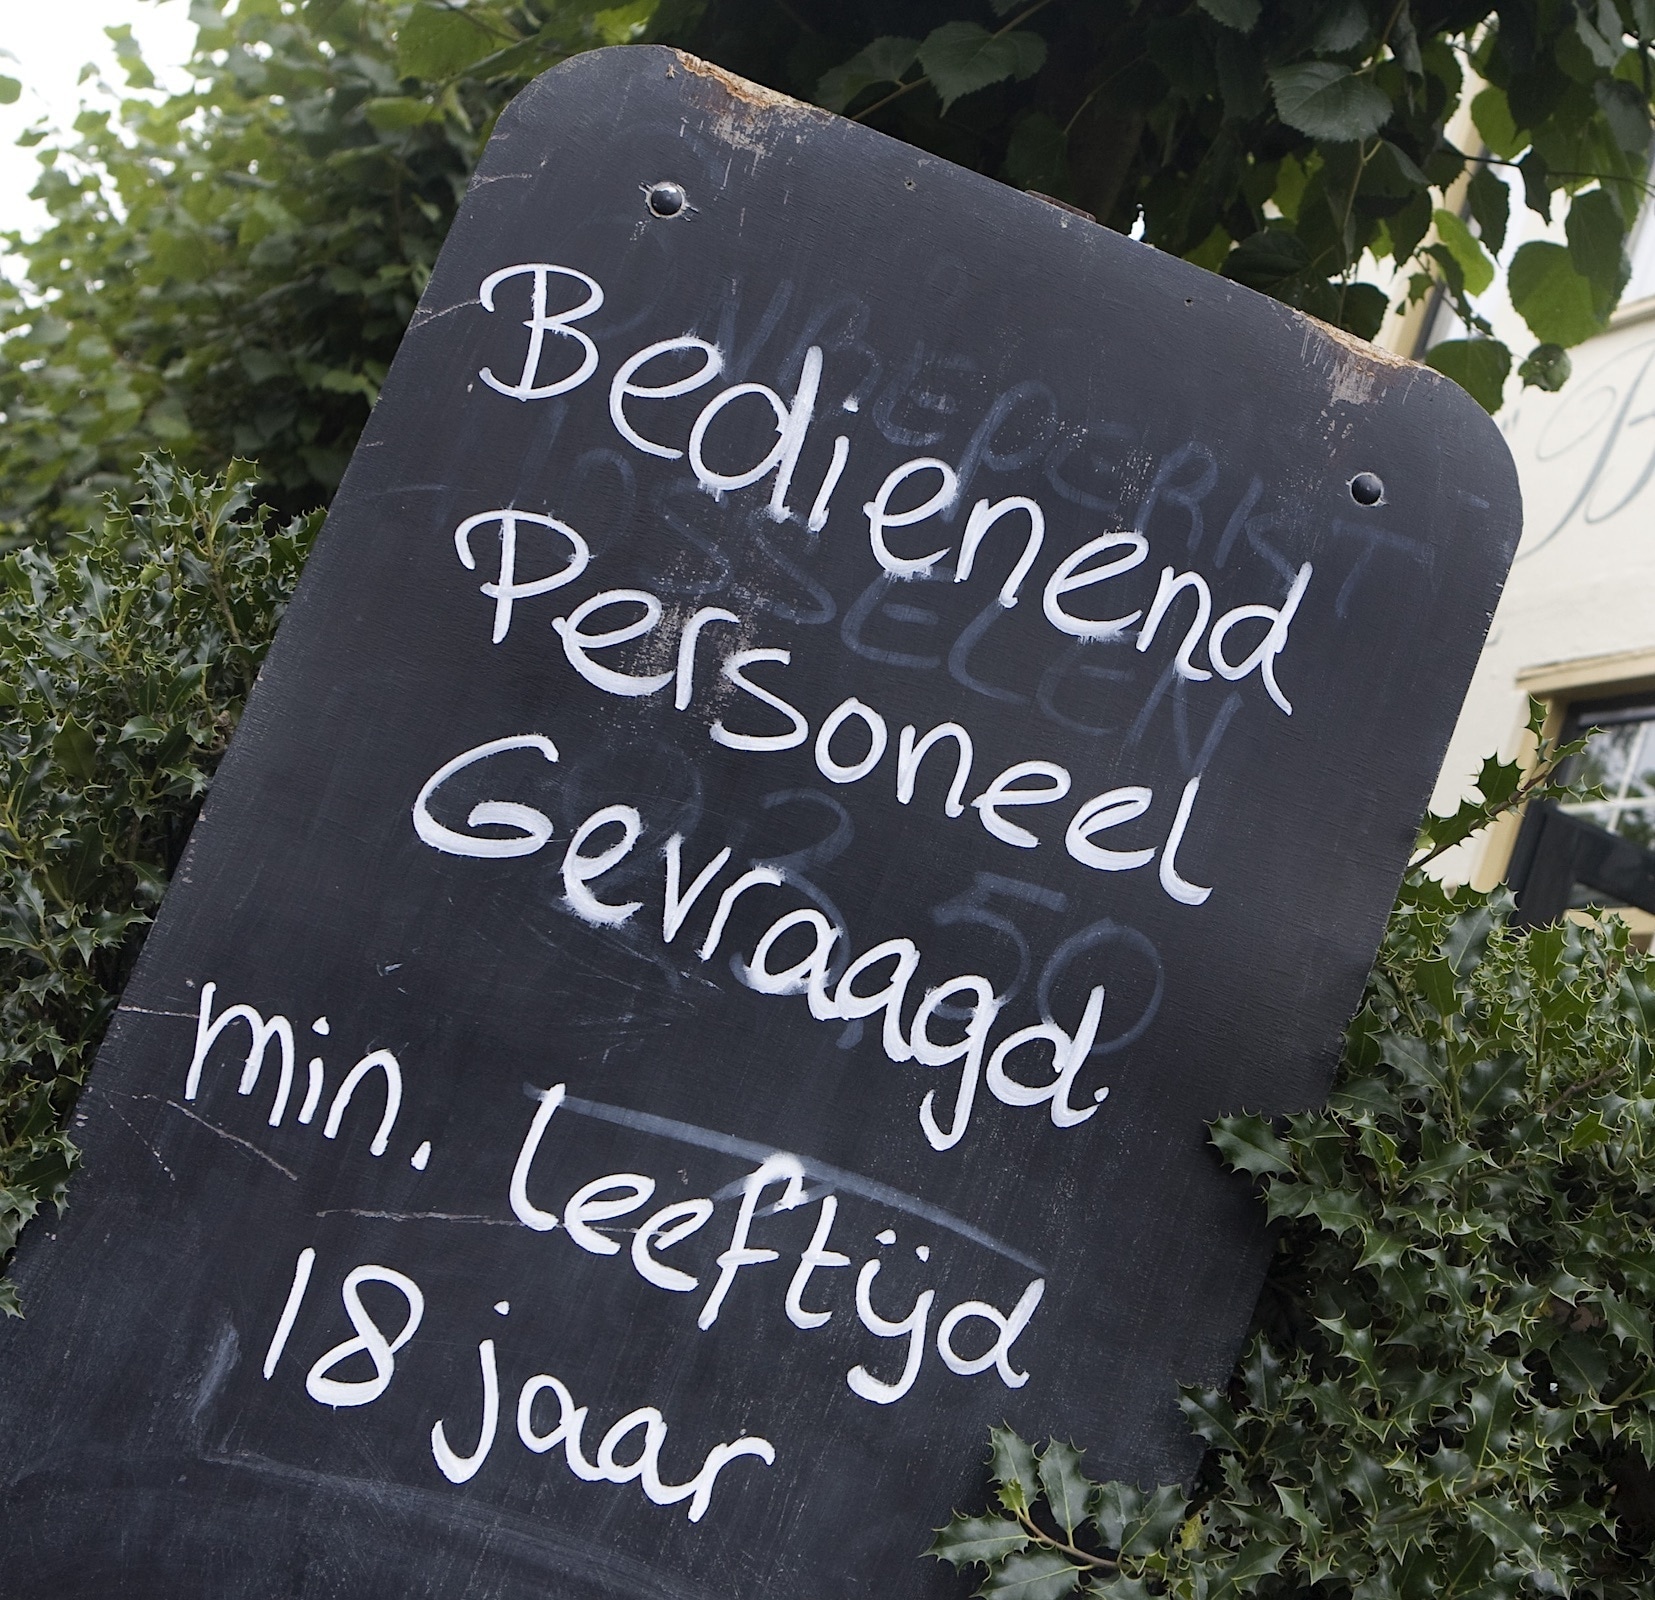 Bedienend
Personeel
Gevraagd.
min. leeftijd
18 jaar